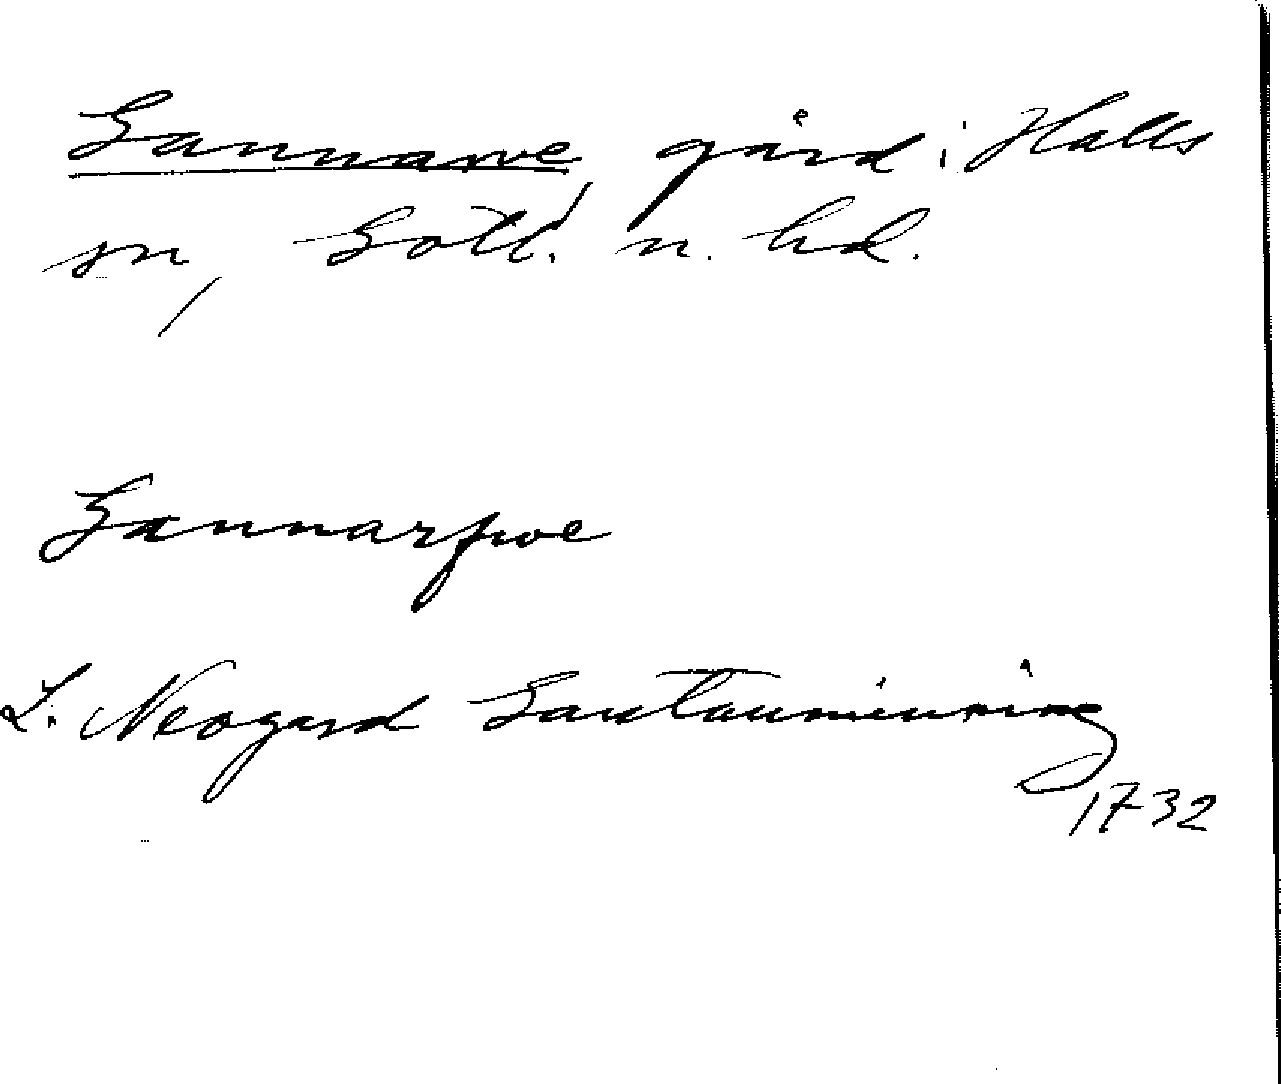 Gannarve, gård i Halls
sn, Gotl. n. hd.
Gannarfwe
L. Neogard Gautauminning
1732